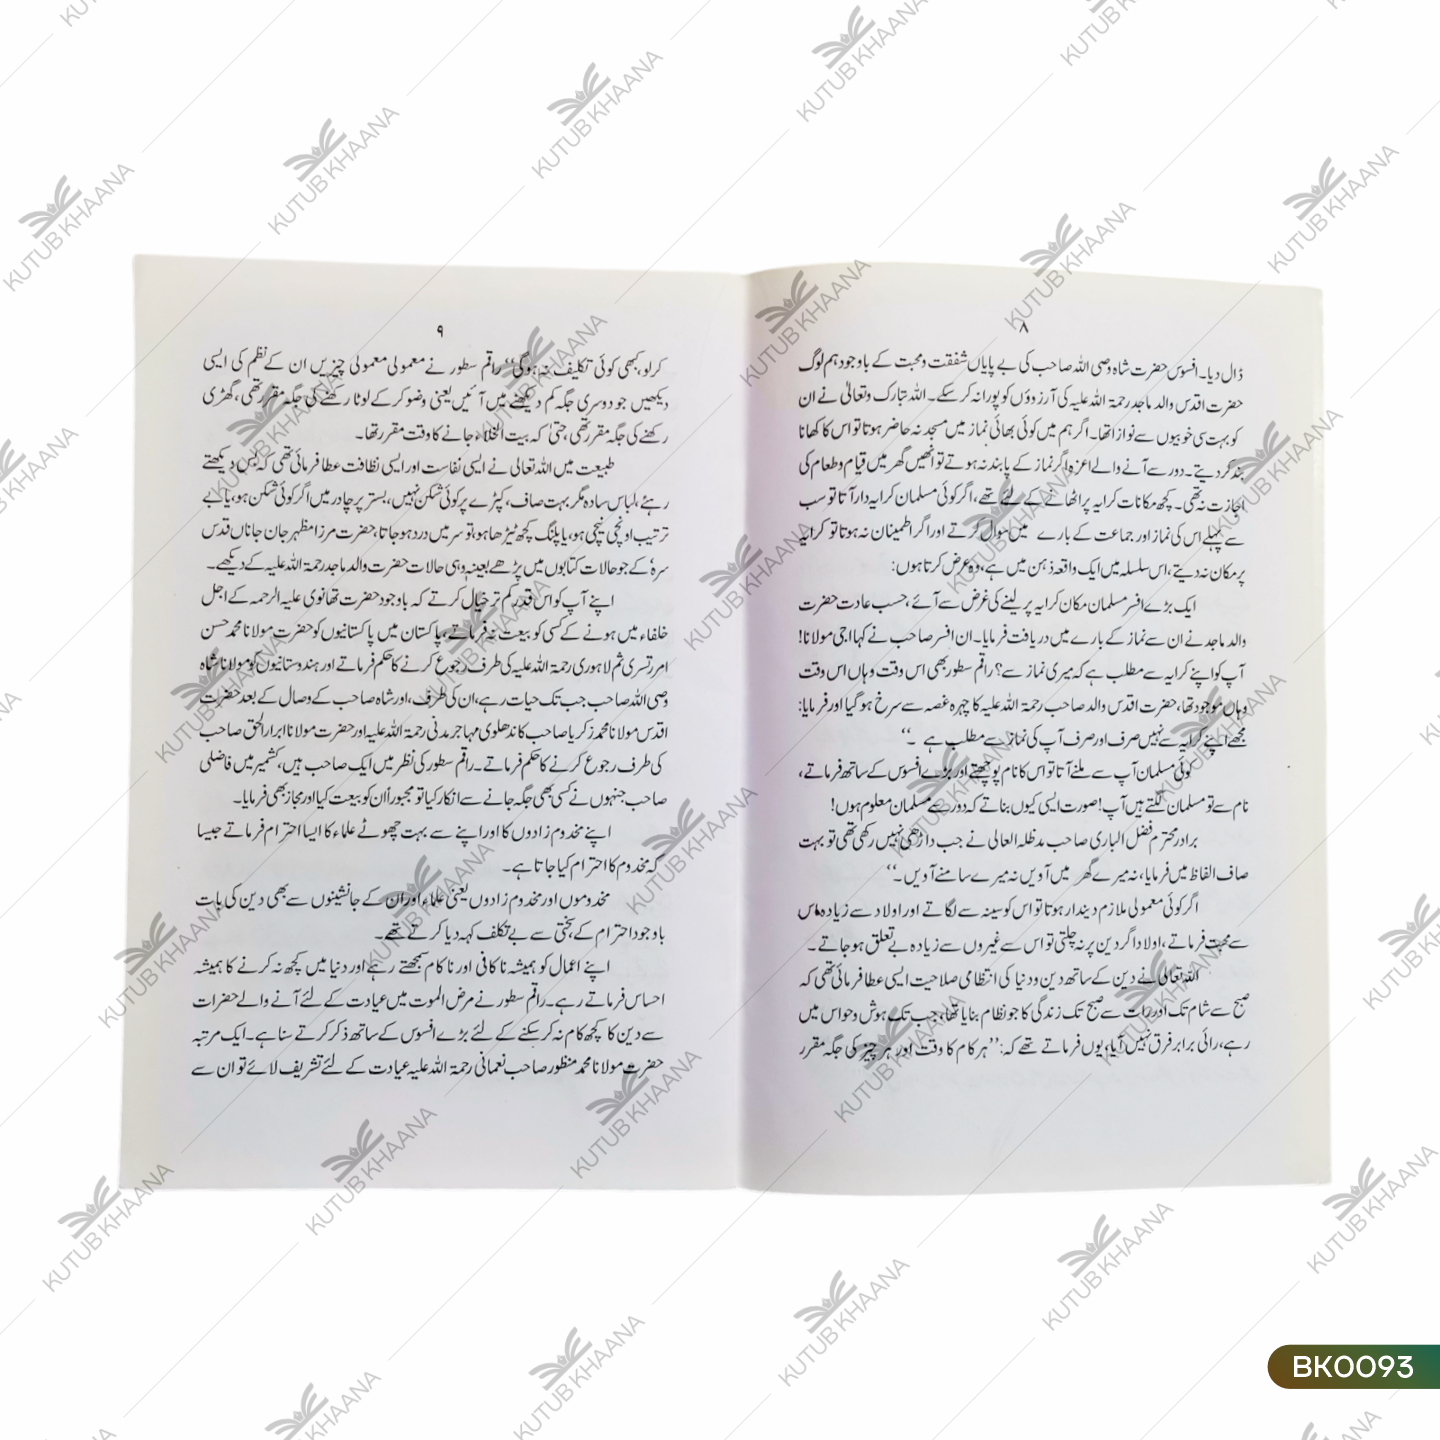 ۸
ڈال دیا۔ افسوس حضرت شاہ وصی اللہ صاحب کی بے پایاں شفقت ومحبت کے باوجود ہم لوگ
حضرت اقدس والد ماجد رحمۃ اللہ علیہ کی آرزوؤں کو پورا نہ کرسکے۔ اللہ تبارک وتعالیٰ نے ان
کو بہت سی خوبیوں سے نوازا تھا۔ اگر ہم میں کوئی بھائی نماز میں مسجد نہ حاضر ہوتا تو اس کا کھانا
بند کردیتے۔ دور سے آنے والے اعزہ اگر نماز کے پابند نہ ہوتے تو انھیں گھر میں قیام وطعام کی
اجازت نہ تھی۔ کچھ مکانات کرایہ پر اٹھانے کے لئے تھے، اگر کوئی مسلمان کرایہ دار آتا تو سب
سے پہلے اس کی نماز اور جماعت کے بارے میں سوال کرتے اور اگر اطمینان نہ ہوتا تو کرایہ
پر مکان نہ دیتے، اس سلسلہ میں ایک واقعہ ذہن میں ہے، وہ عرض کرتا ہوں:
ایک بڑے افسر مسلمان مکان کرایہ پر لینے کی غرض سے آئے، حسب عادت حضرت
والد ماجد نے ان سے نماز کے بارے میں دریافت فرمایا۔ ان افسر صاحب نے کہا اجی مولانا!
آپ کو اپنے کرایہ سے مطلب ہے کہ میری نماز سے؟ راقم سطور بھی اس وقت وہاں اس وقت
وہاں موجود تھا، حضرت اقدس والد صاحب رحمۃ اللہ علیہ کا چہرہ غصہ سے سرخ ہوگیا اور فرمایا:
مجھے اپنے کرایہ سے نہیں صرف اور صرف آپ کی نماز سے مطلب ہے ۔‘‘
کوئی مسلمان آپ سے ملنے آتا تو اس کا نام پوچھتے اور بڑے افسوس کے ساتھ فرماتے،
نام سے تو مسلمان لگتے ہیں آپ! صورت ایسی کیوں بناتے کہ دور سے مسلمان معلوم ہوں!
برادر محترم فضل الباری صاحب مدظلہ العالی نے جب داڑھی نہیں رکھی تھی تو بہت
صاف الفاظ میں فرمایا، نہ میرے گھر میں آویں نہ میرے سامنے آویں ۔‘‘
اگر کوئی معمولی ملازم دیندار ہوتا تو اس کو سینہ سے لگاتے اور اولاد سے زیادہ اس
سے محبت فرماتے، اولاد اگر دین پر نہ چلتی تو اس سے غیروں سے زیادہ بے تعلق ہوجاتے۔
اللہ تعالیٰ نے دین کے ساتھ دین ودنیا کی انتظامی صلاحیت ایسی عطا فرمائی تھی کہ
صبح سے شام تک اور رات سے صبح تک زندگی کا جو نظام بنایا تھا، جب تک ہوش وحواس میں
رہے، رائی برابر فرق نہیں آیا، یوں فرماتے تھے کہ: ’’ہر کام کا وقت اور ہر چیز کی جگہ مقرر
۹
کرلو، کبھی کوئی تکلیف نہ ہوگی‘‘ راقم سطور نے معمولی معمولی چیزیں ان کے نظم کی ایسی
دیکھیں جو دوسری جگہ کم دیکھنے میں آئیں یعنی وضو کر کے لوٹا رکھنے کی جگہ مقرر تھی، گھڑی
رکھنے کی جگہ مقرر تھی، حتیٰ کہ بیت الخلاء جانے کا وقت مقرر تھا۔
طبیعت میں اللہ تعالی نے ایسی نفاست اور ایسی نظافت عطا فرمائی تھی کہ بس دیکھتے
رہئے، لباس سادہ مگر بہت صاف، کپڑے پر کوئی شکن نہیں، بستر پر چادر میں اگر کوئی شکن ہو، یا بے
ترتیب اونچی نیچی ہو، یا پلنگ کچھ ٹیڑھا ہو، تو سر میں درد ہوجاتا، حضرت مرزا مظہر جان جاناں قدس
سرہٗ کے جو حالات کتابوں میں پڑھے بعینہ وہی حالات حضرت والد ماجد رحمۃ اللہ علیہ کے دیکھے۔
اپنے آپ کو اس قدر کم تر خیال کرتے کہ باوجود حضرت تھانوی علیہ الرحمہ کے اجل
خلفاء میں ہونے کے کسی کو بیعت نہ فرماتے، پاکستان میں پاکستانیوں کو حضرت مولانا محمد حسن
امرتسری ثم لاہوری رحمۃ اللہ علیہ کی طرف رجوع کرنے کا حکم فرماتے اور ہندوستانیوں کو مولانا شاہ
وصی اللہ صاحب جب تک حیات رہے، ان کی طرف، اور شاہ صاحب کے وصال کے بعد حضرت
اقدس مولانا محمد زکریا صاحب کاندھلوی مہاجر مدنی رحمۃ اللہ علیہ اور حضرت مولانا ابرار الحق صاحب
کی طرف رجوع کرنے کا حکم فرماتے۔ راقم سطور کی نظر میں ایک صاحب ہیں، کشمیر میں فاضلی
صاحب جنہوں نے کسی بھی جگہ جانے سے انکار کیا تو مجبوراً ان کو بیعت کیا اور مجاز بھی فرمایا۔
اپنے مخدوم زادوں کا اور اپنے سے بہت چھوٹے علماء کا ایسا احترام فرماتے جیسا
کہ مخدوم کا احترام کیا جاتا ہے۔
مخدوموں اور مخدوم زادوں یعنی علماء اور ان کے جانشینوں سے بھی دین کی بات
باوجود احترام کے، سختی سے بے تکلف کہہ دیا کرتے تھے۔
اپنے اعمال کو ہمیشہ ناکافی اور ناکام سمجھتے رہے اور دنیا میں کچھ نہ کرنے کا ہمیشہ
احساس فرماتے رہے۔ راقم سطور نے مرض الموت میں عیادت کے لئے آنے والے حضرات
سے دین کا کچھ کام نہ کرسکنے کے لئے بڑے افسوس کے ساتھ ذکر کرتے سنا ہے۔ ایک مرتبہ
حضرت مولانا محمد منظور صاحب نعمانی رحمۃ اللہ علیہ عیادت کے لئے تشریف لائے تو ان سے
KUTUB KHAANA
BK0093